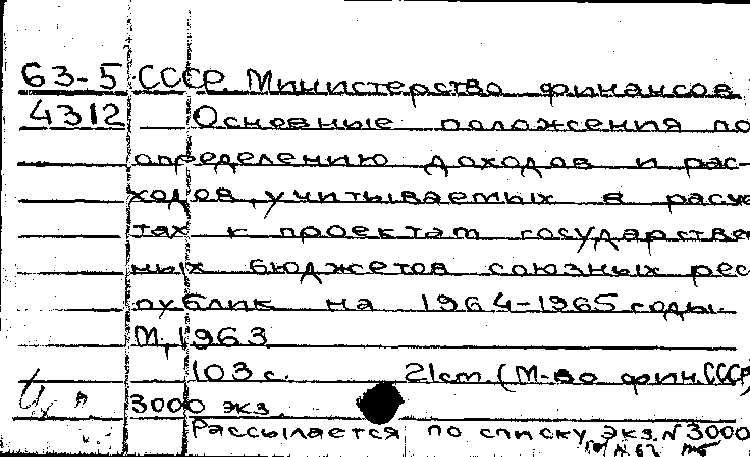 63-5 СССР. Министерство финансов.
4312 Основные положения по
определению доходов и рас-
ходов, учитываемых в расче
тах к проектам государстве
нных бюджетов союзных рес
публик на 1964-1965 годы.
М., 1963
103 с. 21 см. (М-во фин. СССР)
3000 экз.
Рассылается по списку Экз. N 3000